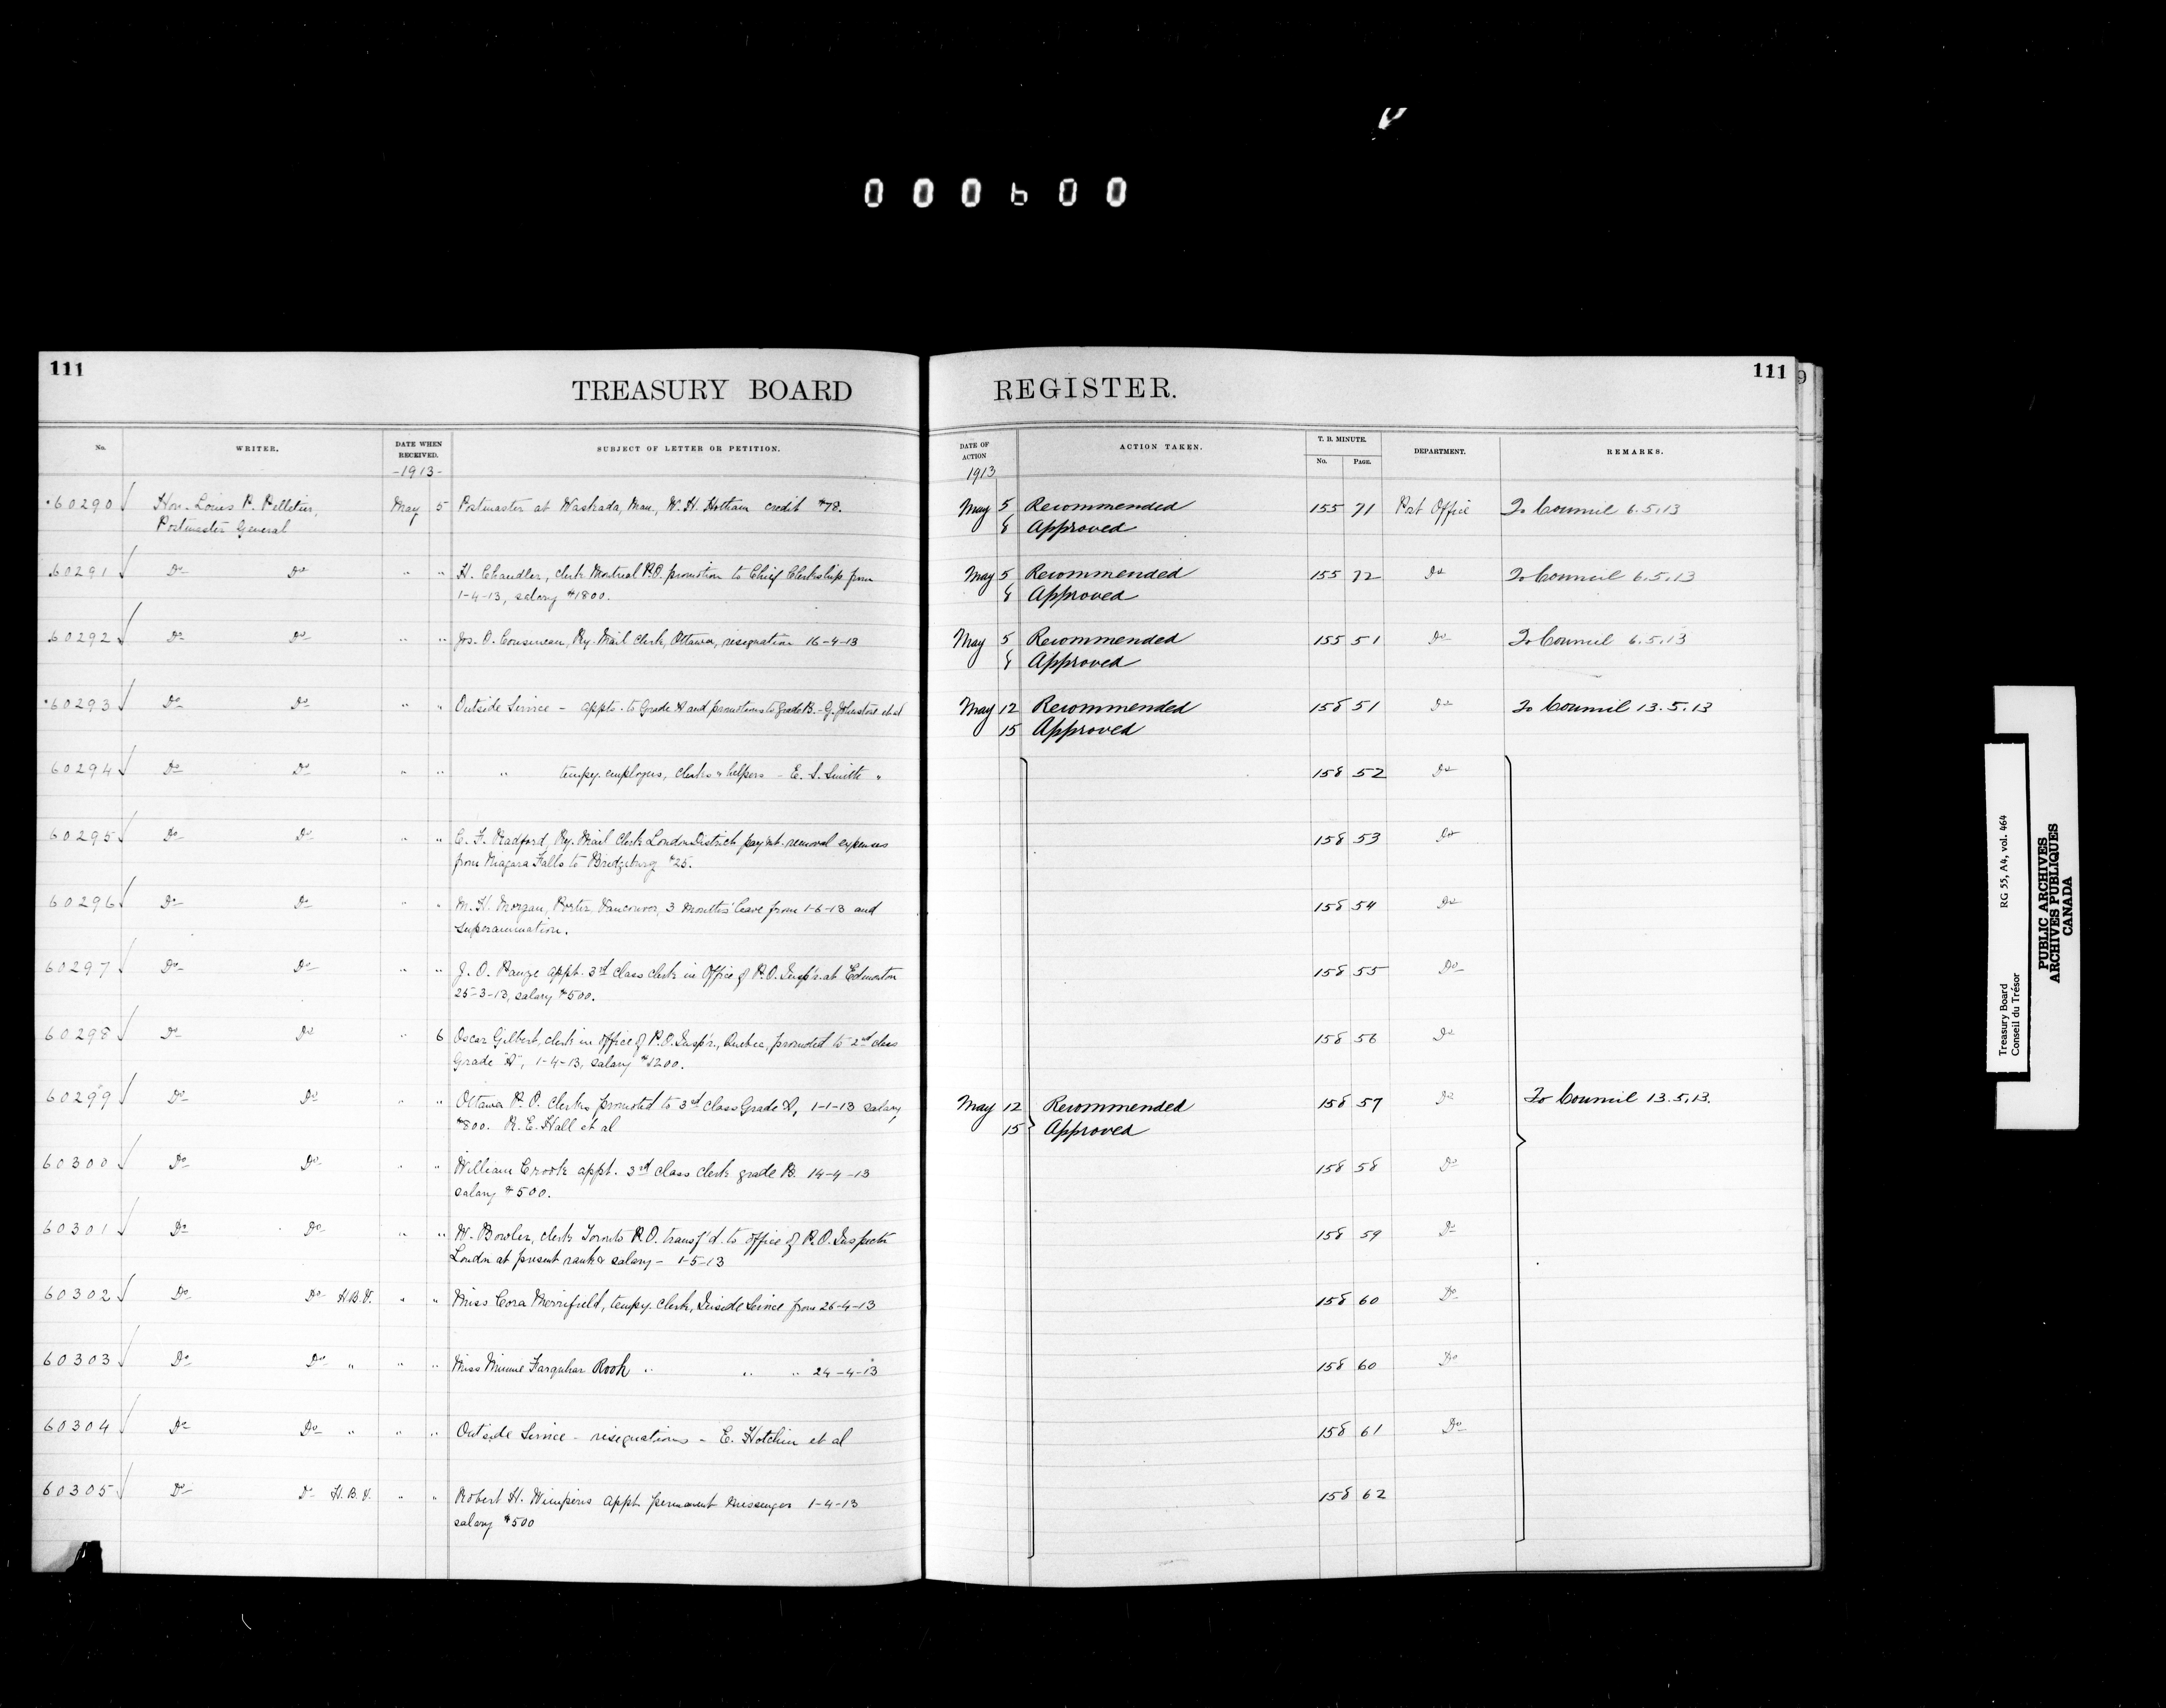 000600
111
TREASURY BOARD
No.
WRITER.
DATE WHEN RECEIVED.
-1913-
SUBJECT OF LETTER OR PETITION.
60290 Hon. Louis P. Pelletier, May 5 Postmaster at Waskada, Man., W. H. Hotham credit $78.
Postmaster General
60291 Do Do " " H. Chandler, clerk Montreal P.O. promotion to Chief Clerkship from
1-4-13, salary $1800.
60292 Do Do " " Jos. O. Cousineau, Ry. Mail Clerk, Ottawa, resignation 16-4-13
60293 Do Do " " Outside Service - appts. to Grade A and promotions to Grade B. - G. Johnstone et al
60294 Do Do " " " tempy. employees, clerks & helpers - E. S. Smith "
60295 Do Do " " C. F. Radford, Ry. Mail Clerk London District paym't. removal expenses
from Niagara Falls to Bridgeburg $25.
60296 Do Do " " M. H. Morgan, Porter, Vancouver, 3 months' leave from 1-6-13 and
superannuation.
60297 Do Do " " J. O. appt. 3rd class clerk in Office of P.O. Insp'r. at Edmonton
25-3-13, salary $500.
60298 Do Do " 6 Oscar Gilbert, clerk in office of P.O. Insp'r., Quebec, promoted to 2nd class
Grade "A", 1-4-13, salary $1200.
60299 Do Do " " Ottawa P.O. Clerks promoted to 3rd Class Grade A, 1-1-13 salary
$800. R. E. Hall et al
60300 Do Do " " William Crook appt. 3rd class clerk grade B. 14-4-13
salary $500.
60301 Do Do " " W. Bowler, clerk Toronto P.O. transf'd. to office of P.O. Inspector
London at present rank & salary - 1-5-13
60302 Do Do H.B.V. " " Miss Cora Merrifield, tempy. clerk, Inside Service from 26-4-13
60303 Do Do " " " Miss Minnie Farquhar Rook " " " 24-4-13
60304 Do Do " " " Outside Service - resignations - E. Hotchin et al
60305 Do Do H.B.V. " " Robert H. Wimperis appt. permanent messenger 1-4-13
salary $500
REGISTER.
111
9
DATE OF ACTION
1913
ACTION TAKEN.
T. B. MINUTE.
No.
PAGE.
DEPARTMENT.
REMARKS.
May 5 Recommended 155 71 Post Office To Council 6.5.13
8 Approved
May 5 Recommended 155 72 Do To Council 6.5.13
8 Approved
May 5 Recommended 155 51 Do To Council 6.5.13
8 Approved
May 12 Recommended 158 51 Do To Council 13.5.13
15 Approved
158 52 Do
158 53 Do
158 54 Do
158 55 Do
158 56 Do
May 12 Recommended 158 57 Do To Council 13.5.13.
15 Approved
158 58 Do
158 59 Do
158 60 Do
158 60 Do
158 61 Do
158 62
Treasury Board RG 55, A4, vol. 464
Conseil du Trésor
PUBLIC ARCHIVES
ARCHIVES PUBLIQUES
CANADA